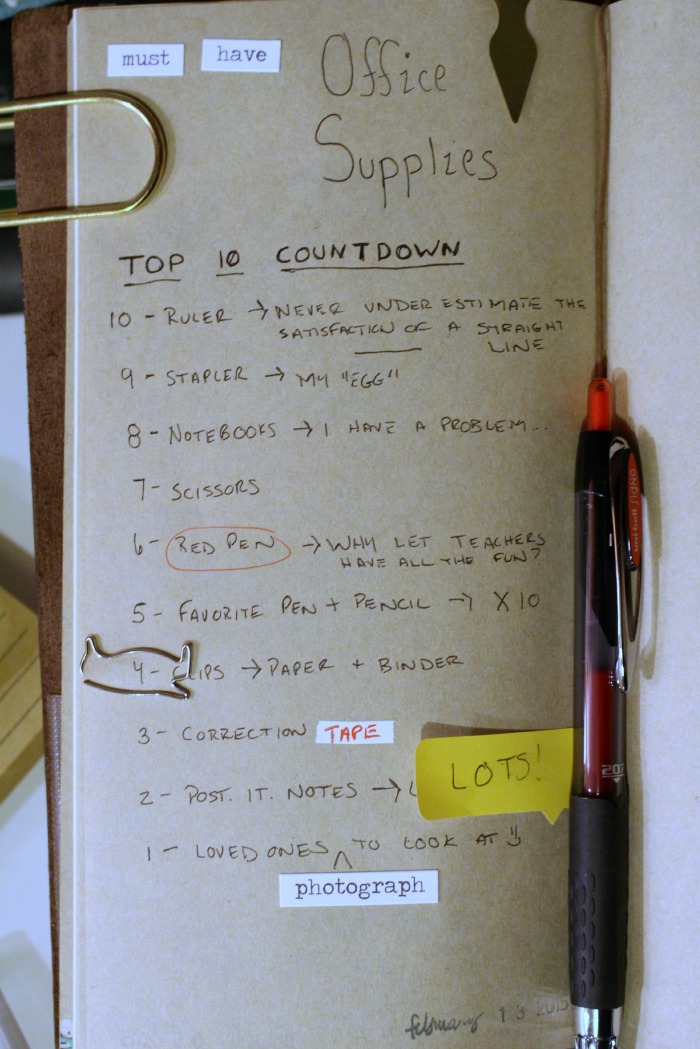 must have
Office
Supplies
TOP 10 COUNTDOWN
10 - RULER → NEVER UNDERESTIMATE THE
SATISFACTION OF A STRAIGHT
LINE
9 - STAPLER → MY "EGG"
8 - NOTEBOOKS → I HAVE A PROBLEM...
7 - SCISSORS
6 - RED PEN → WHY LET TEACHERS
HAVE ALL THE FUN?
5 - FAVORITE PEN + PENCIL → X10
4 - CLIPS → PAPER + BINDER
3 - CORRECTION TAPE
2 - POST. IT. NOTES → LOTS!
1 - LOVED ONES ^ TO LOOK AT :)
photograph
february 13 2015
uni-ball SIGNO
207